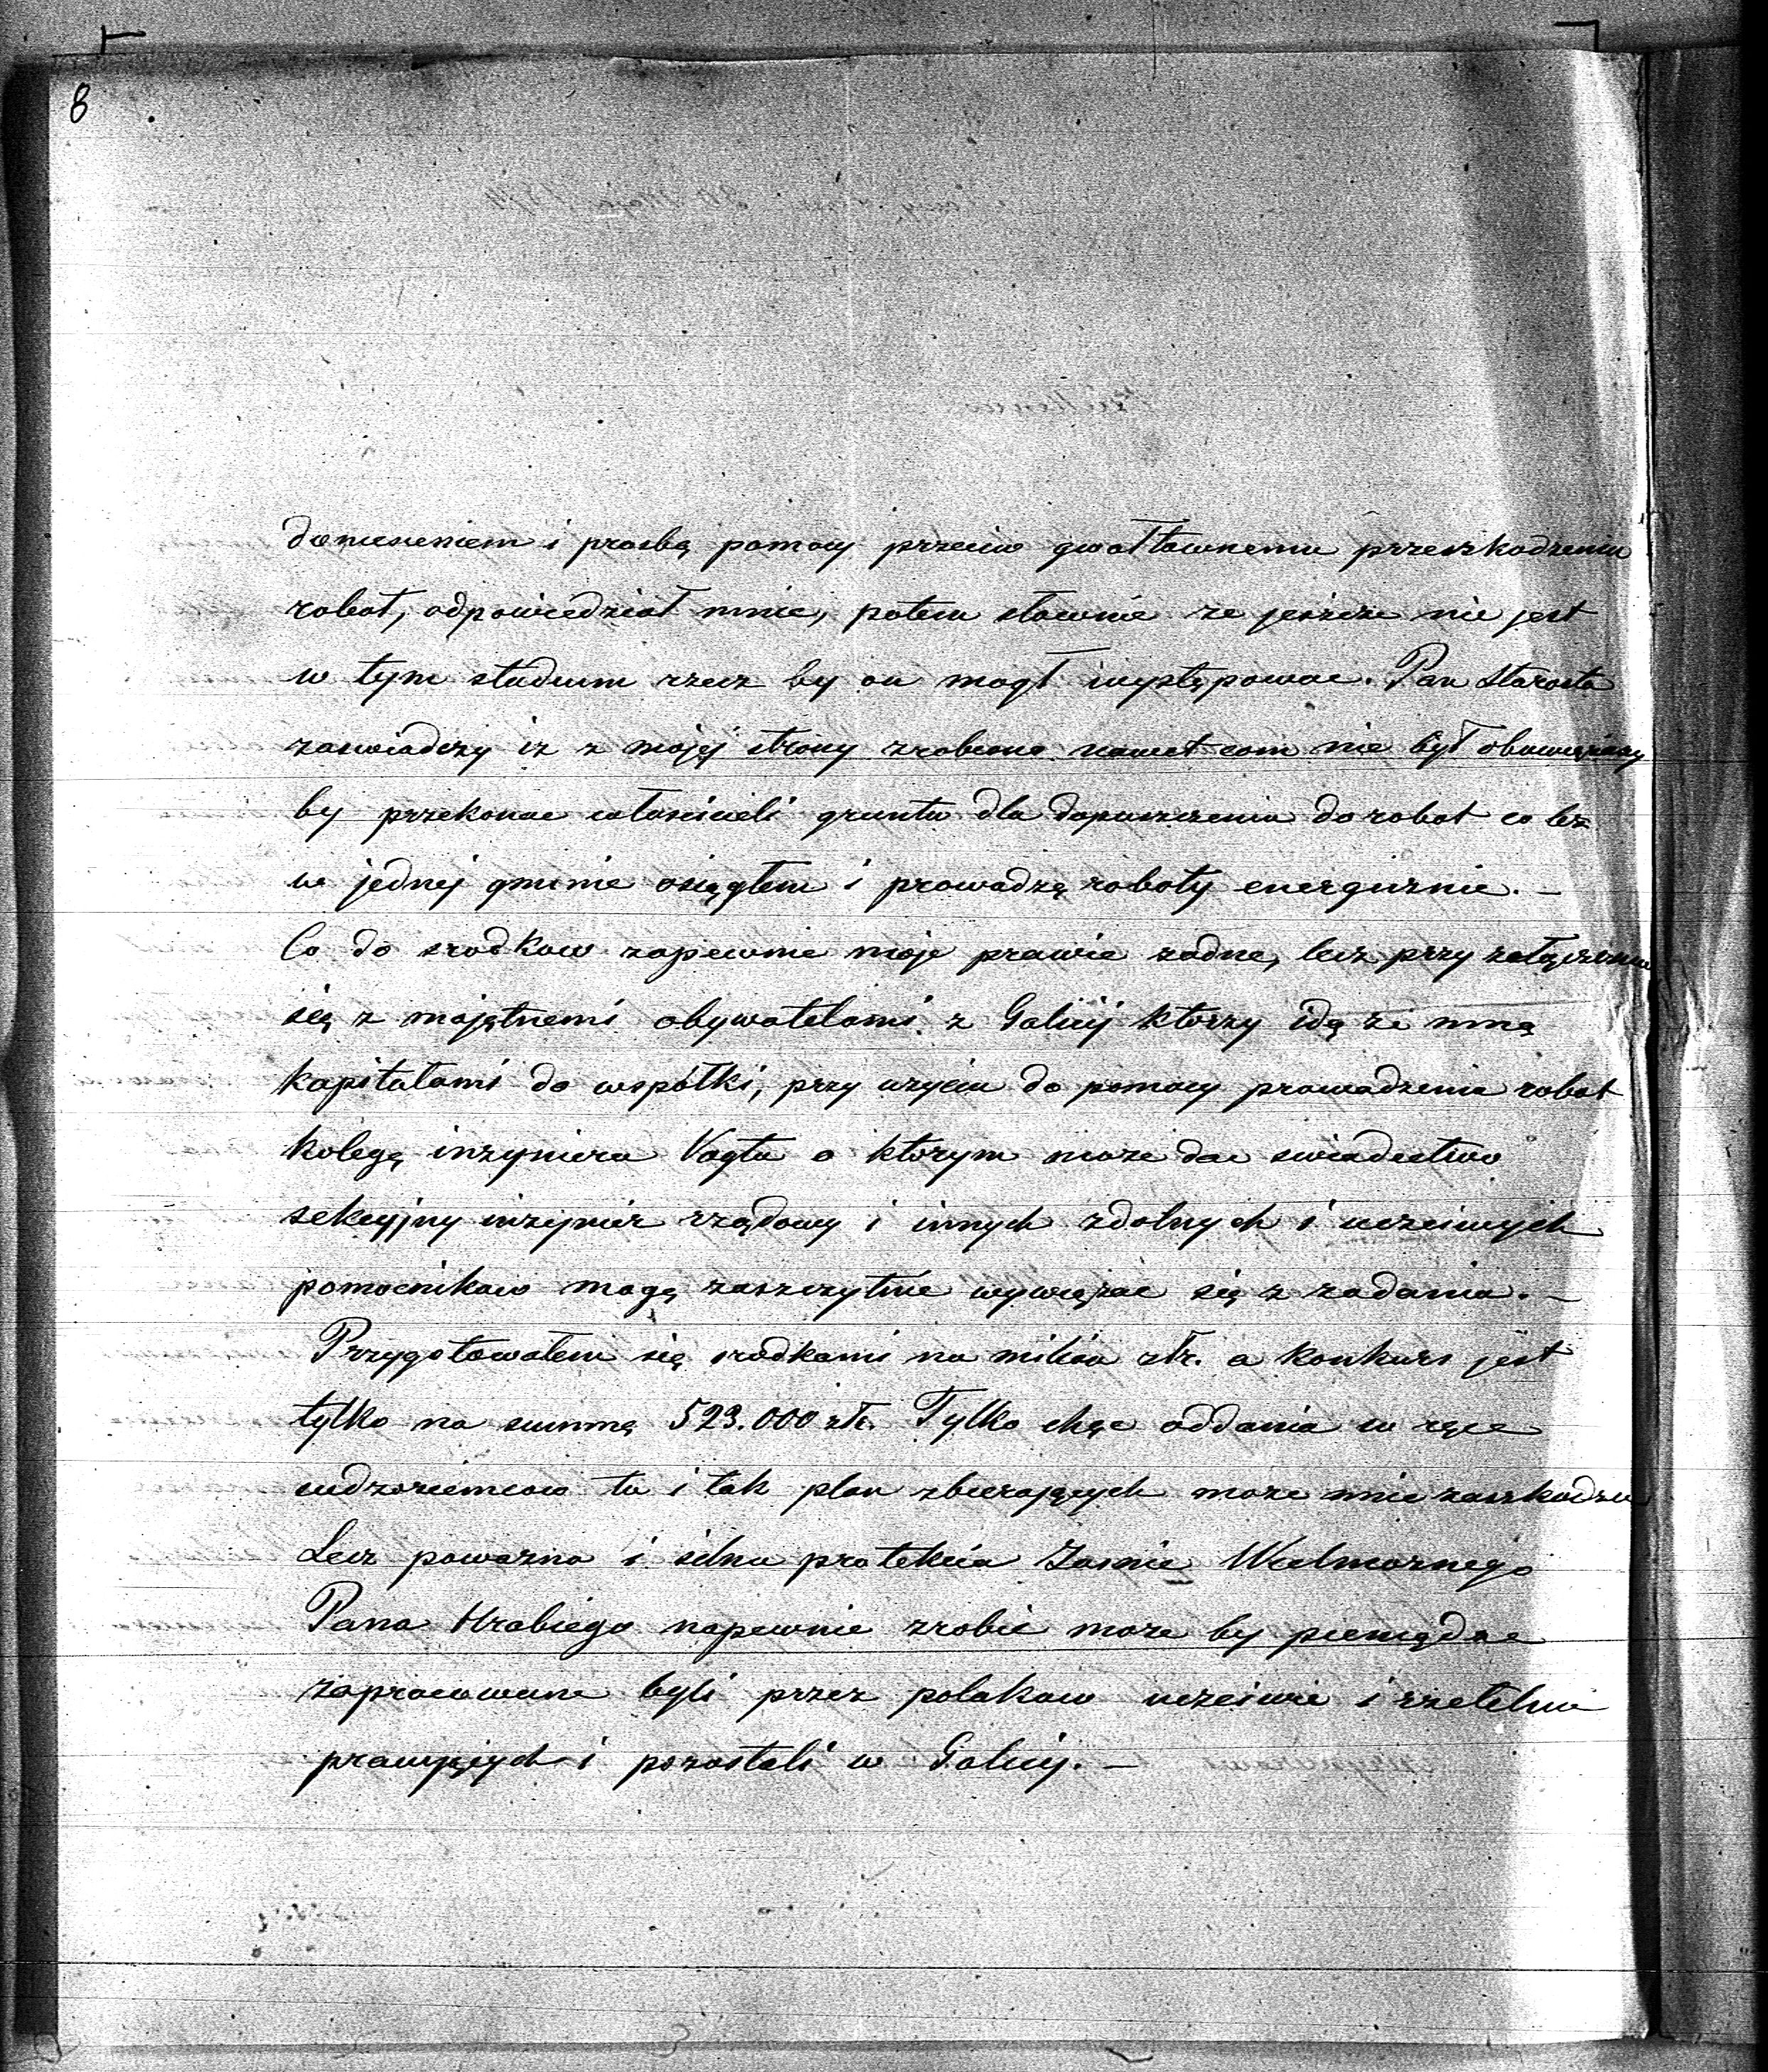 8
doniesieniem i prosbą pomocy przeciw gwałtownemu przeszkodzeniu
robot, odpowiedział mnie, potem słownie ze jeszcze nie jest
w tym studium rzecz by on mogł występowac. Pan Starosta
zaswiadczy iz z mojej strony zrobiono nawet com nie był obowiązany
by przekonac własicieli gruntu dla dopuszczenia do robot co bez
w jednej gminie osiągłem i prowadzę roboty energicznie. –
Co do srodkow zapewnie moje prawie zadne, lecz przy załączeniu
się z majętnemi obywatelami z Galicij ktorzy idą ze mną
kapitałami do wspołki, przy uzyciu do pomocy prowadzenia robot
kolegę inzyniera Vogta o ktorym moze dac swiadectwo
sekcyjny inzynier rządowy i innych zdolnych i uczciwych
pomocnikow mogę zaszczytnie wywiązac się z zadania. –
Przygotowałem się srodkami na milion złr. a konkurs jest
tylko na summę 523.000 złr. Tylko chęc oddania w ręce
cudzoziemcow tu i tak plon zbierających moze mnie zaszkodzic
Lecz powazna i silna protekcia Jasnie Wielmoznego
Pana Hrabiego napewnie zrobic moze by pieniądze
zapracowane byli przez polakow uczciwie i rzetelnie
pracujących i pozostali w Galicij. –